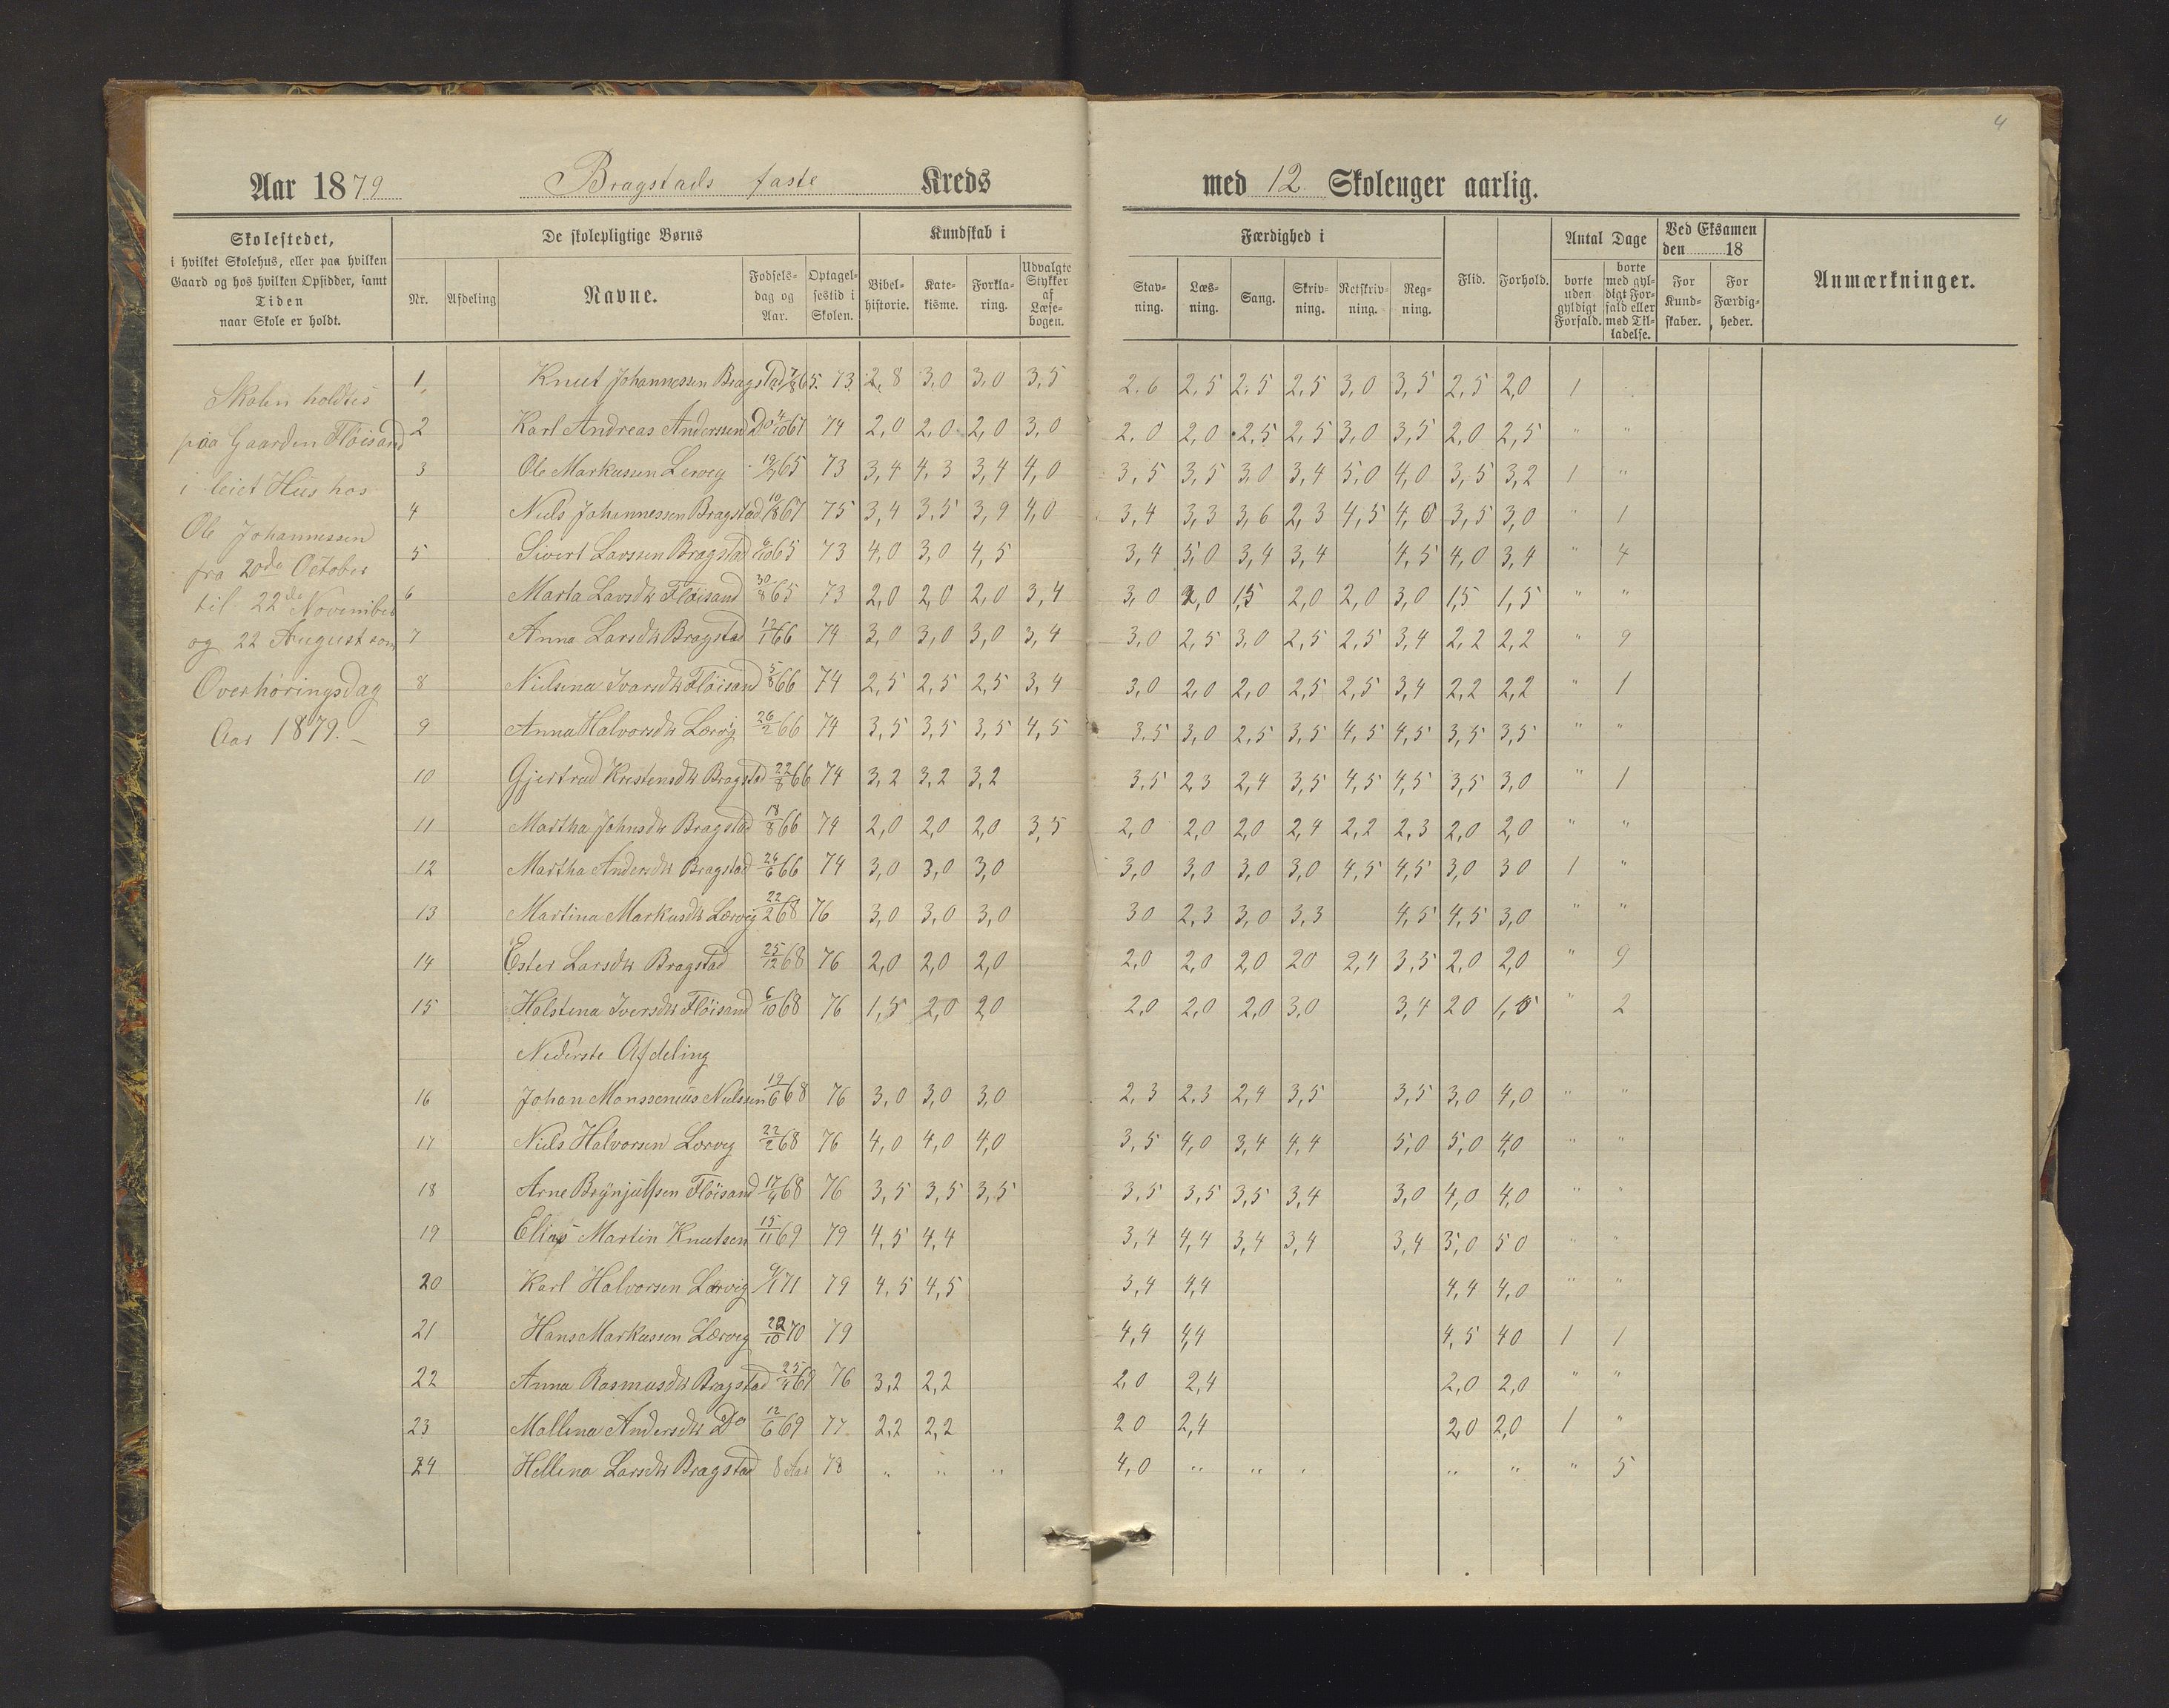 4
Aar 1879 Bragstads faste Kreds med 12 Skoleuger aarlig.
Skolestedet,
i hvilket Skolehus, eller paa hvilken
Gaard og hos hvilken Opsidder, samt
Tiden
naar Skole er holdt.
De skolepligtige Børns
Nr. Afdeling Navne. Fødselsdag og Aar. Optagelsestid i Skolen.
Kundskab i
Bibelhistorie. Katekisme. Forklaring. Udvalgte Stykker af Læsebogen.
Færdighed i
Stavning. Læsning. Sang. Skrivning. Retskrivning. Regning. Flid. Forhold.
Antal Dage
borte uden gyldigt Forfald. borte med gyldigt Forfald eller med Tilladelse.
Ved Eksamen den 18
For Kundskaber. For Færdigheder.
Anmærkninger.
Skolen holdtes
paa Gaarden Flöisand
i leiet Hüs hos
Ole Johannessen
fra 20de October
til 22de November
og 22 August som
Overhöringsdag
Aar 1879.
1 Knut Johannessen Bragstad 7/8 65. 73. 2,8 3,0 3,0 3,5 2,6 2,5 2,5 2,5 3,0 3,5 2,5 2,0 1
2 Karl Andreas Anderssen Do 4/10 67 74 2,0 2,0 2,0 3,0 2,0 2,0 2,5 2,5 3,0 3,5 2,0 2,5 " "
3 Ole Markussen Lervig 65 73 3,4 4,3 3,4 4,0 3,5 3,5 3,0 3,4 5,0 4,0 3,5 3,2 1 "
4 Niels Johannessen Bragstad 10/8 67 75 3,4 3,5 3,9 4,0 3,4 3,3 3,6 2,3 4,5 4,0 3,5 3,0 " 1
5 Sivert Larssen Bragstad 6/10 65 73 4,0 3,0 4,5 3,4 5,0 3,4 3,4 4,5 4,0 3,4 " 4
6 Marta Larsdtr Flöisand 30/8 65 73 2,0 2,0 2,0 3,4 3,0 2,0 1,5 2,0 2,0 3,0 1,5 1,5 " "
7 Anna Larsdtr Bragstad 12/1 66 74 3,0 3,0 3,0 3,4 3,0 2,5 3,0 2,5 2,5 3,4 2,2 2,2 " 9
8 Nielsina Ivarsdtr Flöisand 5/8 66 74 2,5 2,5 2,5 3,4 3,0 2,0 2,0 2,5 2,5 3,4 2,2 2,2 " 1
9 Anna Halvorsdtr 26/2 66 74 3,5 3,5 3,5 4,5 3,5 3,0 2,5 3,5 4,5 4,5 3,5 3,5 " "
10 Gjertrud Kristensdtr Bragstad 22/8 66 74 3,2 3,2 3,2 3,5 2,3 2,4 3,5 4,5 4,5 3,5 3,0 " 1
11 Martha Johnsdtr Bragstad 18/8 66 74 2,0 2,0 2,0 3,5 2,0 2,0 2,0 2,4 2,2 2,3 2,0 2,0 " "
12 Martha Andersdtr Bragstad 24/6 66 74 3,0 3,0 3,0 3,0 3,0 3,0 3,0 4,5 4,5 3,0 30 1 "
13 Martina Markusdtr Lærvig 22/2 68 76 3,0 3,0 3,0 30 2,3 3,0 3,3 4,5 4,5 3,0 " "
14 Ester Larsdtr Bragstad 25/12 68 76 2,0 2,0 2,0 2,0 2,0 2,0 20 2,4 3,5 2,0 2,0 " 9
15 Halstina Iversdtr Flöisand 6/10 68 76 1,5 2,0 2,0 2,0 2,0 2,0 3,0 3,4 20 1,5 " 2
Nederste Afdeling
16 Johan Monssenius Nielssen 19/6 68 76 3,0 3,0 3,0 2,3 2,3 2,4 3,5 3,5 3,0 4,0 " "
17 Niels Halvorsen Lærvig 22/2 68 76 4,0 4,0 4,0 3,5 4,0 3,4 4,4 5,0 5,0 4,0 " "
18 Arne Brÿnjülfsen Flöisand 17/4 68 76 3,5 3,5 3,5 3,5 3,5 3,5 3,4 3,0 4,0 4,0 " "
19 Elias Martin Knutsen 15/11 69 79 4,5 4,4 3,4 4,4 3,4 3,4 3,4 5,0 50 " "
20 Karl Halvorsen Lærvig 71 79 4,5 4,5 3,4 4,4 4,4 4,0 " "
21 Hans Markussen Lærvig 22/10 70 79 4,4 4,4 4,5 40 1 1
22 Anna Rasmusdtr Bragstad 25/4 69 76 3,2 2,2 2,0 2,4 2,0 2,0 " "
23 Mallina Andersdtr Do 12/6 69 77 2,2 2,2 20 2,4 2,0 2,0 1 "
24 Hellena Larsdtr Bragstad 8 Aar 78 " " " 4,0 " " " " " " 5